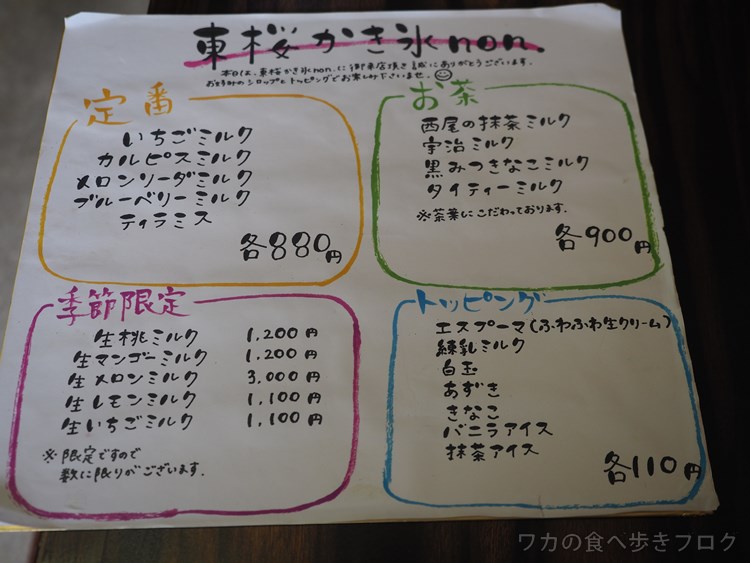 東桜かき氷non.
本日は、東桜かき氷non.に御来店頂き誠にありがとうございます。
お好みのシロップとトッピングでお楽しみ下さいませ。
定番
いちごミルク
カルピスミルク
メロンソーダミルク
ブルーベリーミルク
ティラミス
各880円
お茶
西尾の抹茶ミルク
宇治ミルク
黒みつきなこミルク
タイティーミルク
※茶葉にこだわっております。
各900円
季節限定
生桃ミルク 1,200円
生マンゴーミルク 1,200円
生メロンミルク 3,000円
生レモンミルク 1,100円
生いちごミルク 1,100円
※限定ですので
数に限りがございます。
トッピング
エスプーマ(ふわふわ生クリーム)
練乳ミルク
白玉
あずき
きなこ
バニラアイス
抹茶アイス
各110円
ワカの食べ歩きブログ